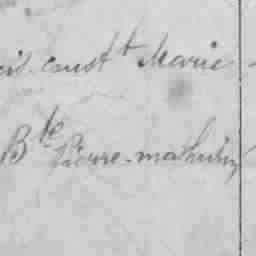 const^t Marie
B^te Pierre-mathurin